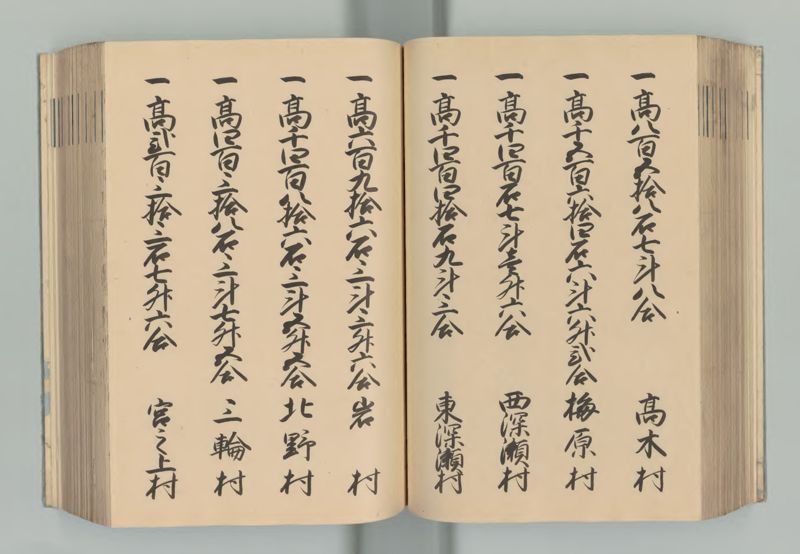 一髙八百五拾八石七斗八合 髙木村
一髙千五百六拾四石六斗六升弐合 梅原村
一髙千四百石七斗壱升六合 西深瀬村
一髙千四百四拾石九斗三合 東深瀬村
一髙六百九拾六石三斗三升六合 岩村
一髙千四百八拾六石三斗五升五合 北野村
一髙四百三拾八石三斗七升五合 三輪村
一髙弐百三拾三石七升六合 宮之上村